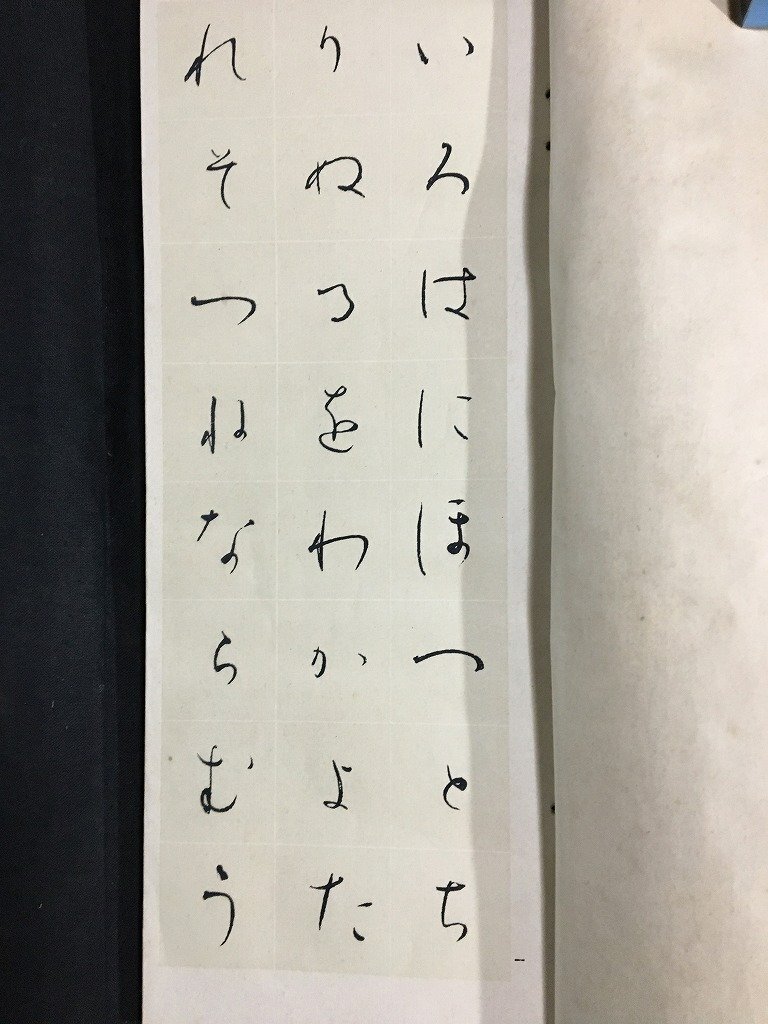 いろはにほへとち
りぬるをわかよた
れそつねならむう
一